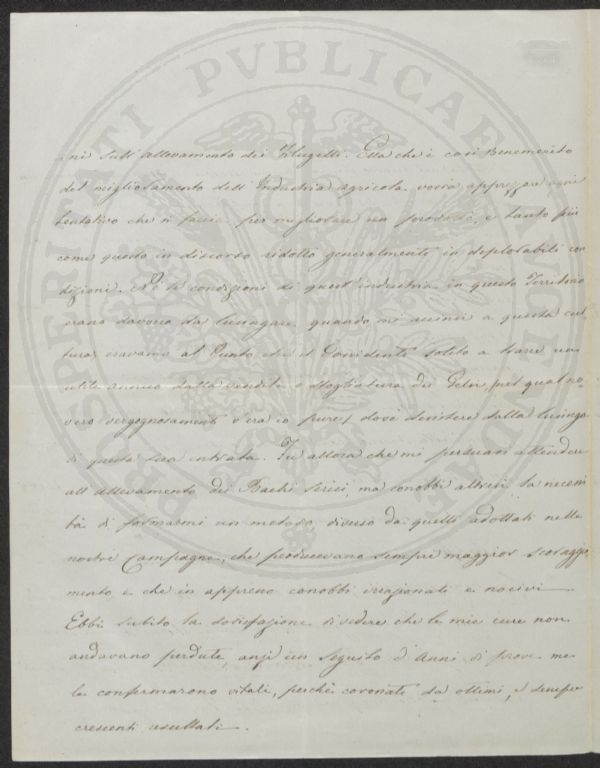 PROSPERITATI PVBLICAE AVGENDAE
ni sull' allevamento dei Filugelli. Ella che è così Benemerito
del miglioramento dell' Industria agricola vorrà apprezzare ogni
tentativo che si faccia per migliorare un prodotto, e tanto più
come questo in discorso ridotto generalmente in deplorabili con
dizioni. Nè le condizioni di quest' industria in questo Territorio
erano davvero da lusingare, quando mi accinsi a questa cul
tura, eravamo al punto che il Possidente solito a trarre un
utile annuo dalla vendita o sfogliatura dei Gelsi, nel qual no
vero vergognosamente v'era io pure, dovè desistere dalla lusinga
di questa sua entrata. Fu allora che mi persuasi attendere
all' allevamento dei Bachi serici, ma conobbi altresì la necessi
tà di formarmi un metodo, diverso da quelli adottati nelle
nostre Campagne, che producevano sempre maggior scoraggia
mento e che in appresso conobbi irragionati e nocivi
Ebbi subito la sodisfazione di vedere che le mie cure non
andavano perdute, anzi un seguito d' Anni di prove me
le confermarono vitali, perchè coronate da ottimi, e sempre
crescenti resultati.